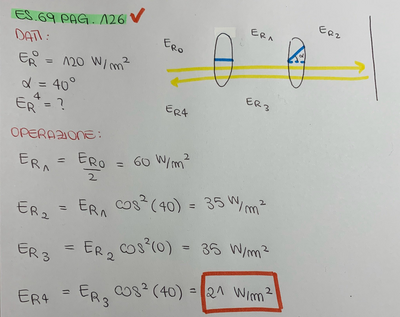 ES.69 PAG.126 ✓
DATI:
E_R^0 = 120 W/m²
α = 40°
E_R^4 = ?
E_R0
E_R1
E_R2
α
E_R4
E_R3
OPERAZIONE:
E_R1 = E_R0/2 = 60 W/m²
E_R2 = E_R1 cos²(40) = 35 W/m²
E_R3 = E_R2 cos²(0) = 35 W/m²
E_R4 = E_R3 cos²(40) = 21 W/m²